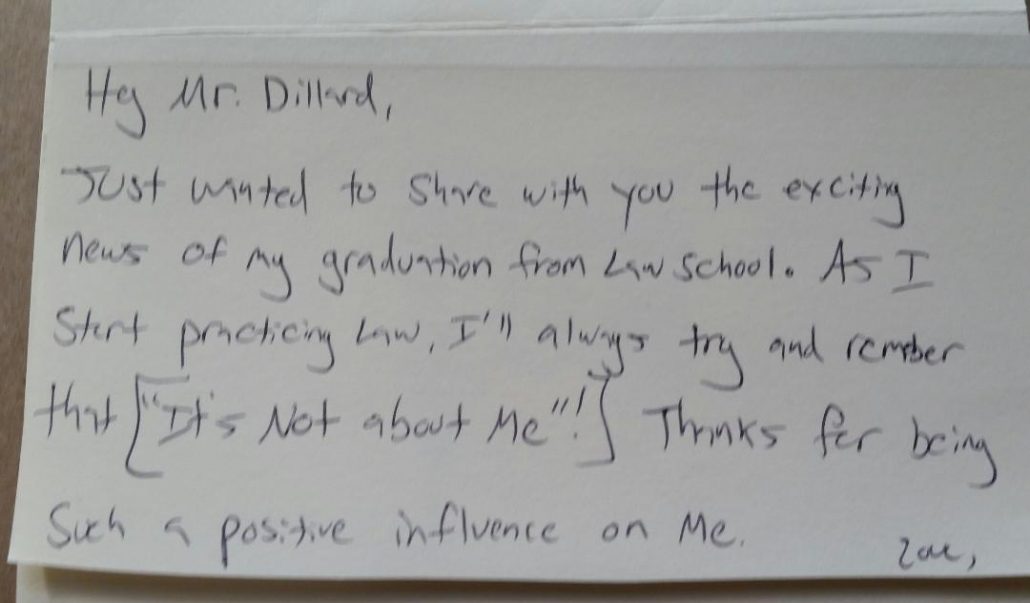 Hey Mr. Dillard,
Just wanted to share with you the exciting
news of my graduation from Law School. As I
Start practicing Law, I'll always try and remember
that ["It's Not about Me"!] Thanks for being
Such a positive influence on Me.
Zac,